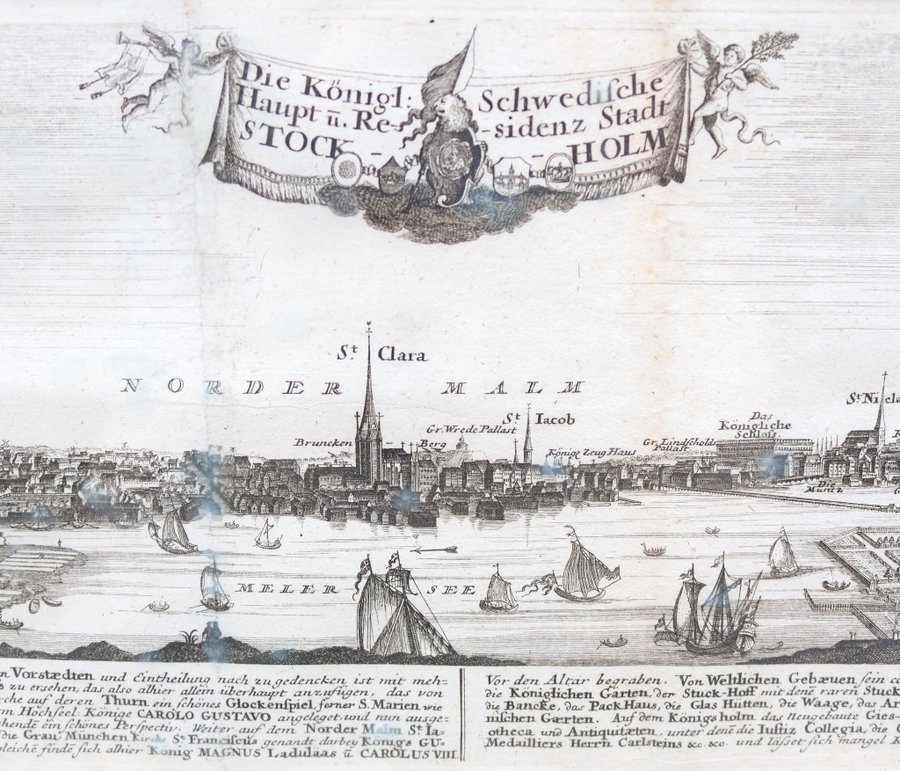 Die Königl: Schwedische
Haupt ū. Re- -sidenz Stadt
STOCK- -HOLM
St Clara
NORDER MALM
St Iacob
Gr. Wrede Pallast
Bruncken Berg
Könige Zeug Haus
Gr. Lindscholds Pallast
Das
Königliche
Schloss
St Nicla
Die
Muntz
MELER SEE
n Vorstædten und Eintheilung nach zu gedencken ist mit meh-
s zu ersehen, das also alhier allein überhaupt anzufügen, das von
rche auf deren Thurn ein schönes Glockenspiel, ferner S. Marien wie
m Höchseel. Könige CAROLO GUSTAVO angeleget, und nun ausge-
hende ein schönes Perspectiv. Weiter auf dem Norder Malm St Ia-
die Grau München Kirche St Franciscus genandt darbey Königs GU-
gleiche finde sich alhier König MAGNUS Ladislaas ū CAROLUS VIII
Vor den Altar begraben. Von Weltlichen Gebæuen sein
die Königlichen Garten, der Stuck-Hoff mit denē raren Stuck
die Bancke, das Pack Haus, die Glas Hütten, die Waage, das Ar
nischen Gærten. Auf dem Königs holm das neugebaute Gies-
otheca und Antiquitæten, unter denē die Iustiz Collegia, die
Medailliers Herrn Carlsteins &c. &c. und læsset sich mangel